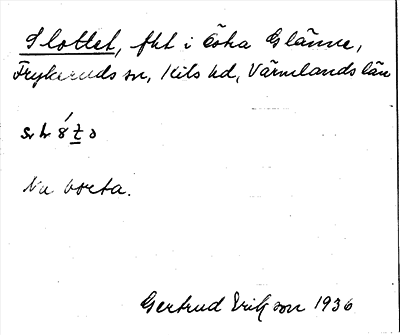 Slottet, fht i Töka Glänne,
Frykeruds sn, Kils hd, Värmlands län
Nu borta.
Gertrud Erikson 1936